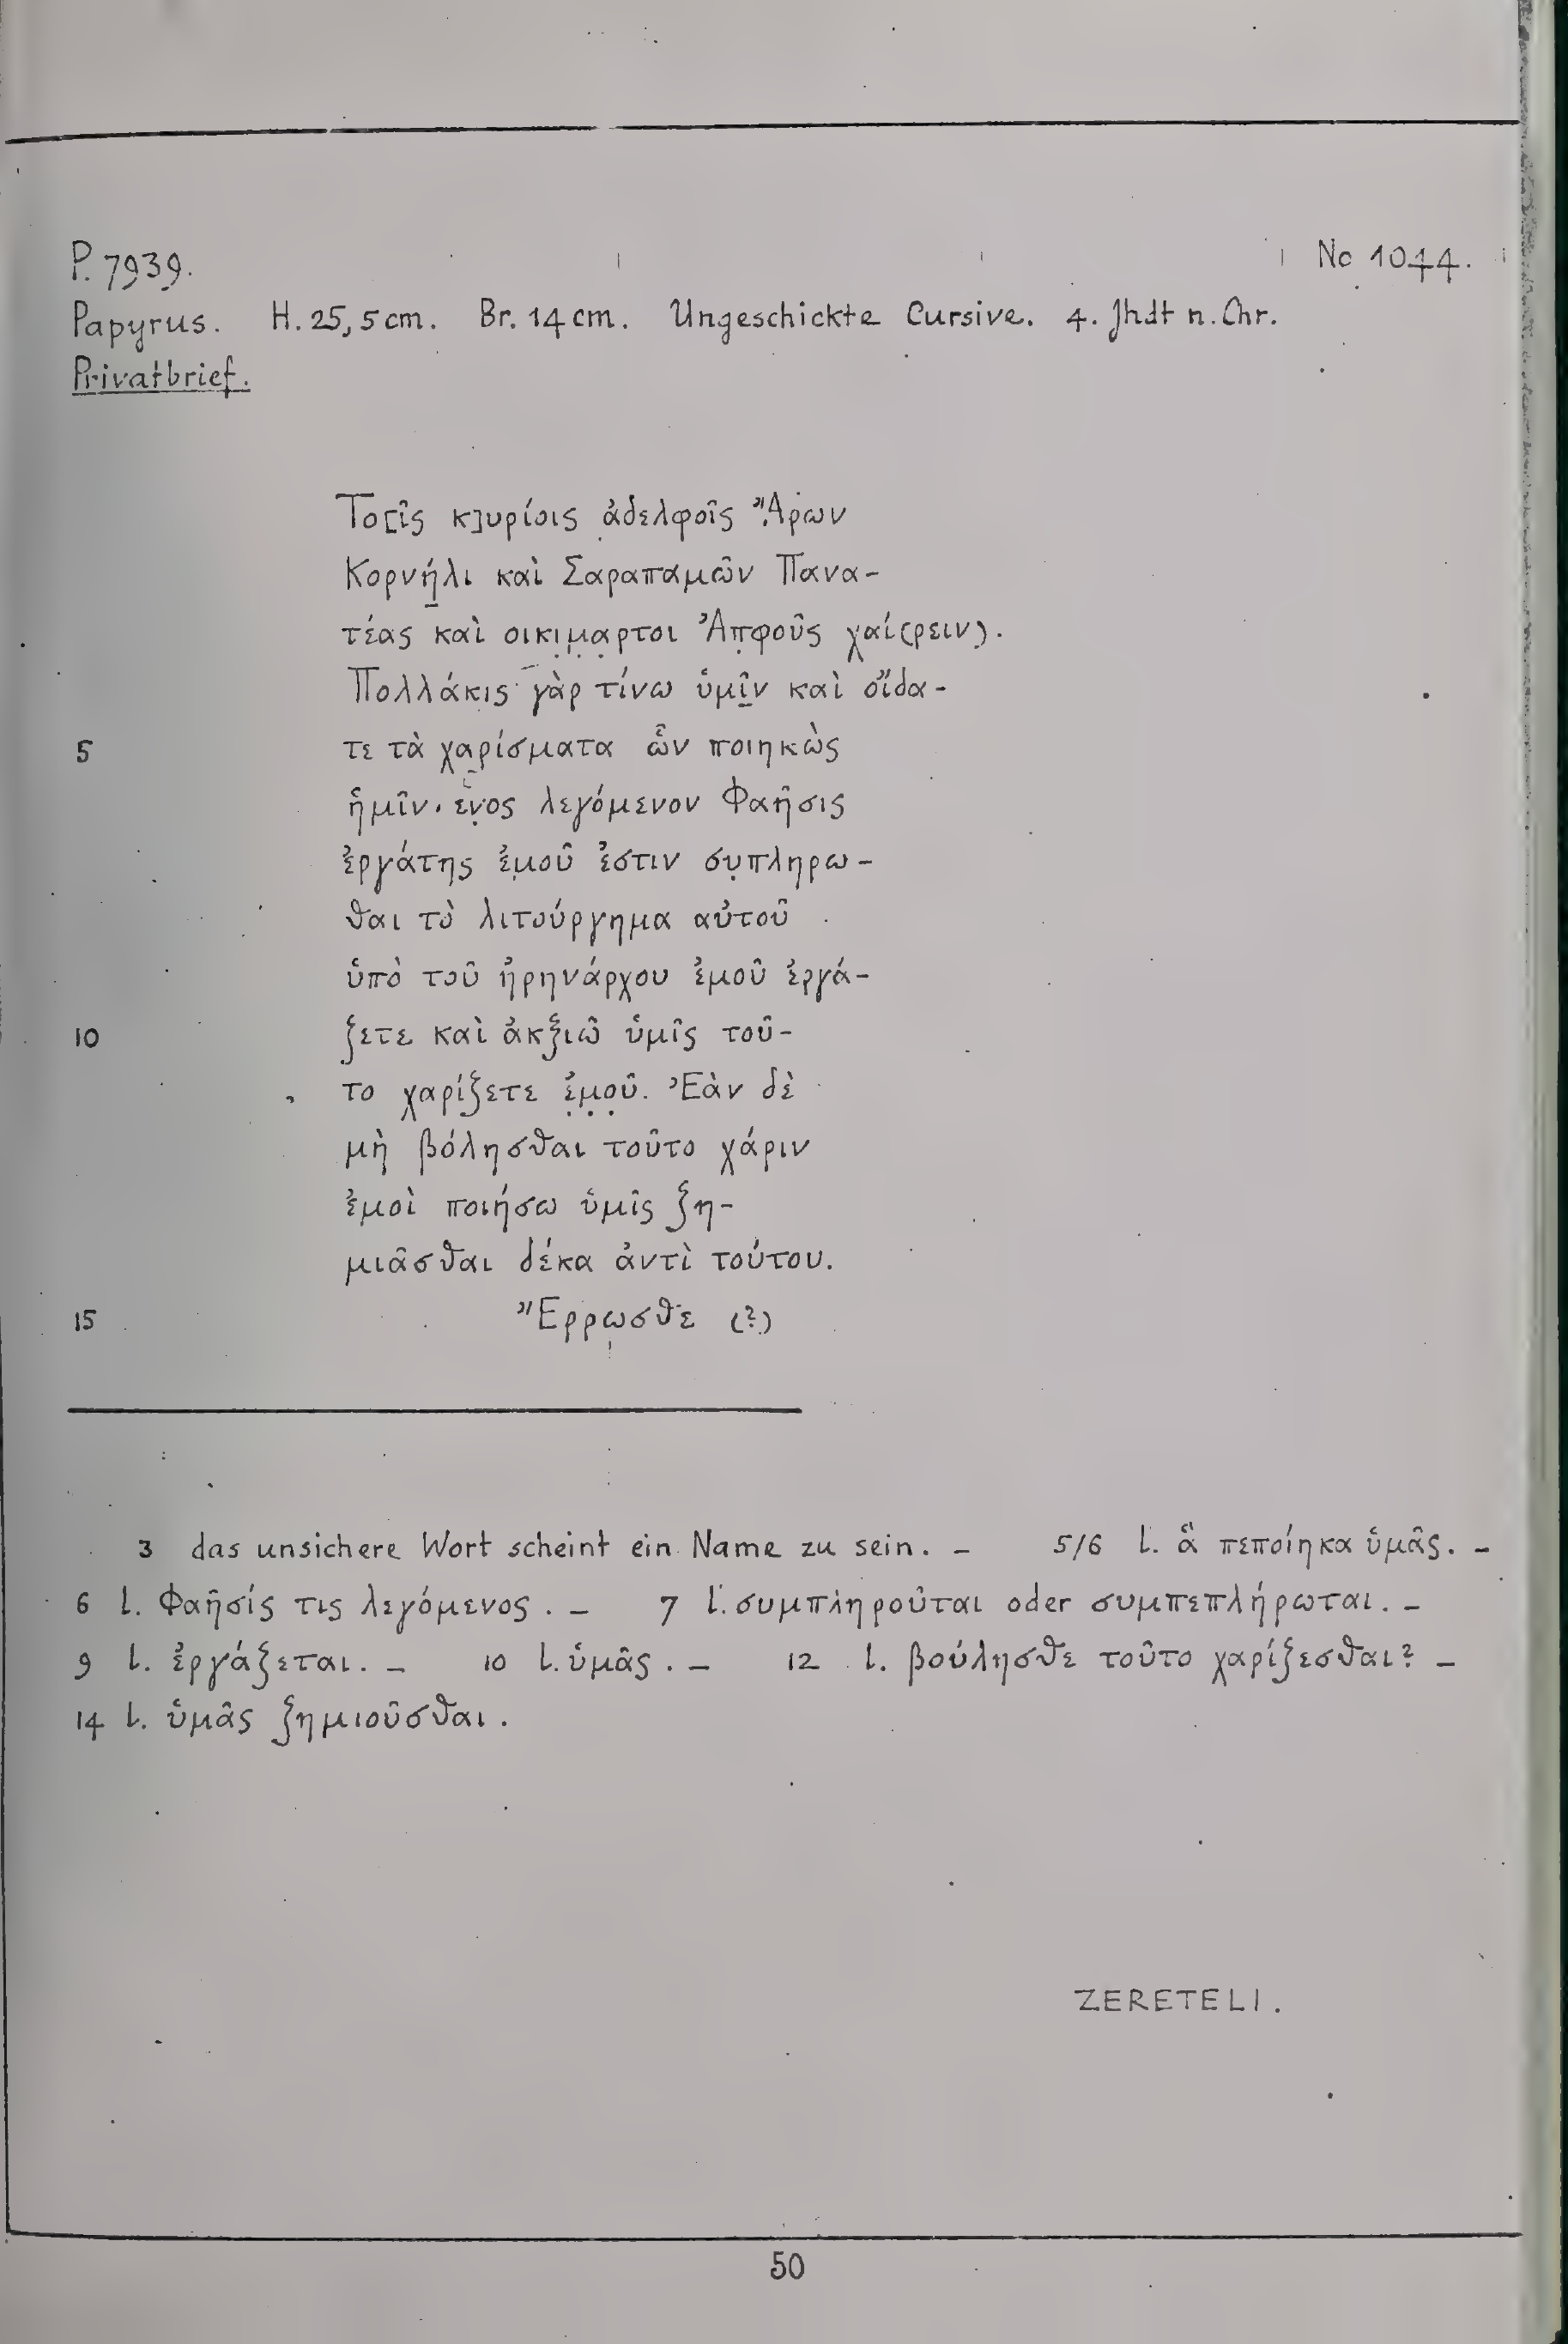 P. 7939. No 1044.
Papyrus. H. 25,5 cm. Br. 14 cm. Ungeschickte Cursive. 4. Jhdt n. Chr.
Privatbrief.
Το[ῖς κ]υρίοις ἀδελφοῖς Ἄρων
Κορνήλι καὶ Σαραπαμῶν Πανα-
τέας καὶ οικιμ̣α̣ρ̣τοι Ἀπφοῦς χαί(ρειν).
Πολλάκις γὰρ τίνω ὑμῖν καὶ οἴδα-
5 τε τὰ χαρίσματα ὧν ποιηκὼς
ἡμῖν. ἑνος λεγόμενον Φαῆσις
ἐργάτης ἐμοῦ ἐστιν συπληρω-
θαι τὸ λιτούργημα αὐτοῦ
ὑπὸ τοῦ ἠρηνάρχου ἐμοῦ ἐργά-
10 ζετε καὶ ἀκξιῶ ὑμῖς τοῦ-
το χαρίζετε ἐ̣μ̣ο̣ῦ. Ἐὰν δὲ
μὴ βόλησθαι τοῦτο χάριν
ἐμοὶ ποιήσω ὑμῖς ζη-
μιᾶσθαι δέκα ἀντὶ τούτου.
15 Ἔρρωσθε (?)
3 das unsichere Wort scheint ein Name zu sein. – 5/6 l. ἃ πεποίηκα ὑμᾶς. –
6 l. Φαῆσίς τις λεγόμενος. – 7 l. συμπληροῦται oder συμπεπλήρωται. –
9 l. ἐργάζεται. – 10 l. ὑμᾶς. – 12 l. βούλησθε τοῦτο χαρίζεσθαι? –
14 l. ὑμᾶς ζημιοῦσθαι.
ZERETELI.
50